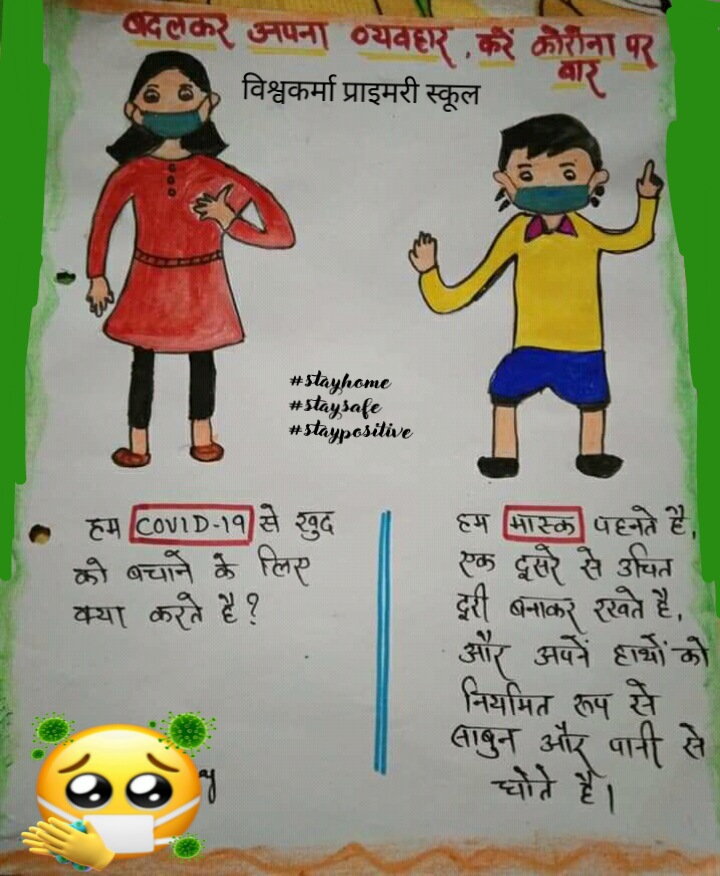 बदलकर अपना व्यवहार, करें कोरोना पर
वार
विश्वकर्मा प्राइमरी स्कूल
#stayhome
#staysafe
#staypositive
हम COVID-19 से खुद
को बचाने के लिए
क्या करते है?
हम मास्क पहनते है,
एक दूसरे से उचित
दूरी बनाकर रखते है,
और अपनें हाथों को
नियमित रूप से
साबुन और पानी से
धोते है।